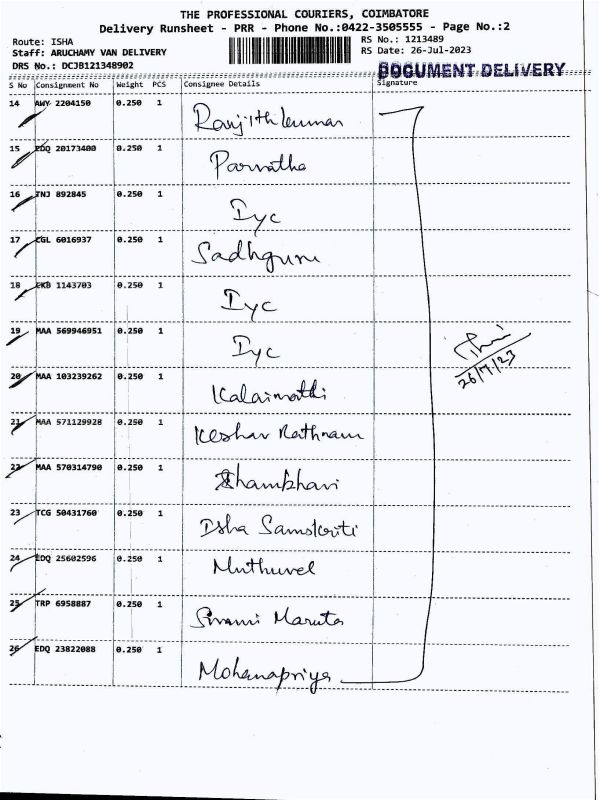 THE PROFESSIONAL COURIERS, COIMBATORE
Delivery Runsheet - PRR - Phone No.:0422-3505555 - Page No.:2
Route: ISHA RS No.: 1213489
Staff: ARUCHAMY VAN DELIVERY RS Date: 26-Jul-2023
DRS No.: DCJB121348902
DOCUMENT DELIVERY
S No Consignment No Weight PCS Consignee Details Signature
14 AWY 2204150 0.250 1 Ranjithkumar
15 EDQ 20173400 0.250 1 Parvatha
16 TNJ 892845 0.250 1 Iyc
17 CGL 6016937 0.250 1 Sadhguru
18 EKB 1143703 0.250 1 Iyc
19 MAA 569946951 0.250 1 Iyc
26/7/23
20 MAA 103239262 0.250 1 Kalaimathi
21 MAA 571129928 0.250 1 Keshav Rathnam
22 MAA 570314790 0.250 1 Shambhavi
23 TCG 50431760 0.250 1 Isha Samskriti
24 EDQ 25602596 0.250 1 Muthuvel
25 TRP 6958887 0.250 1 Swami Maruta
26 EDQ 23822088 0.250 1 Mohanapriya